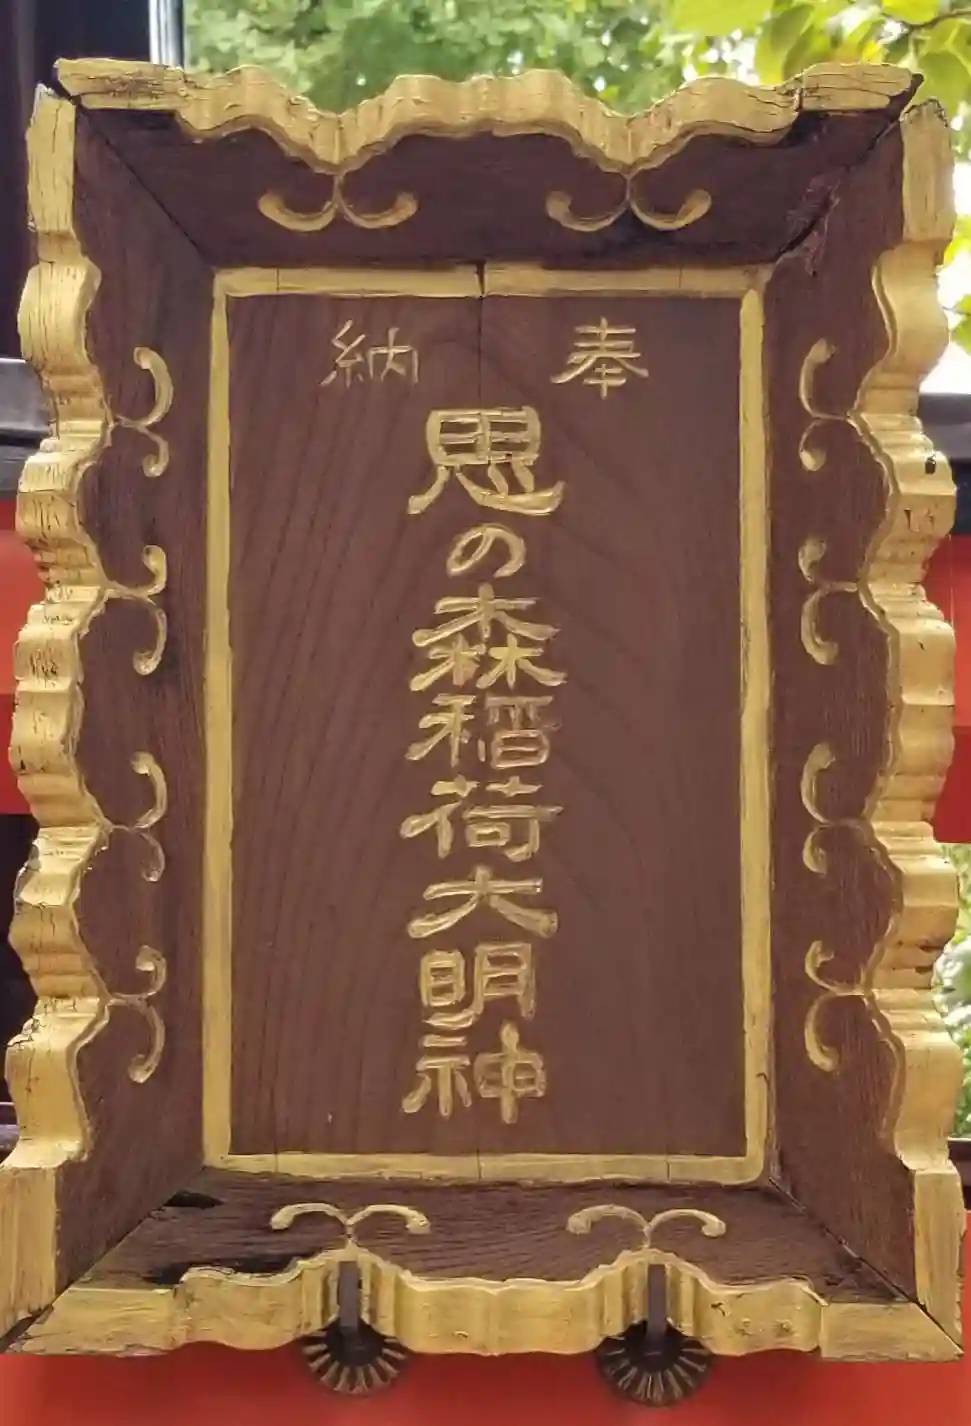 奉納
思の森稲荷大明神